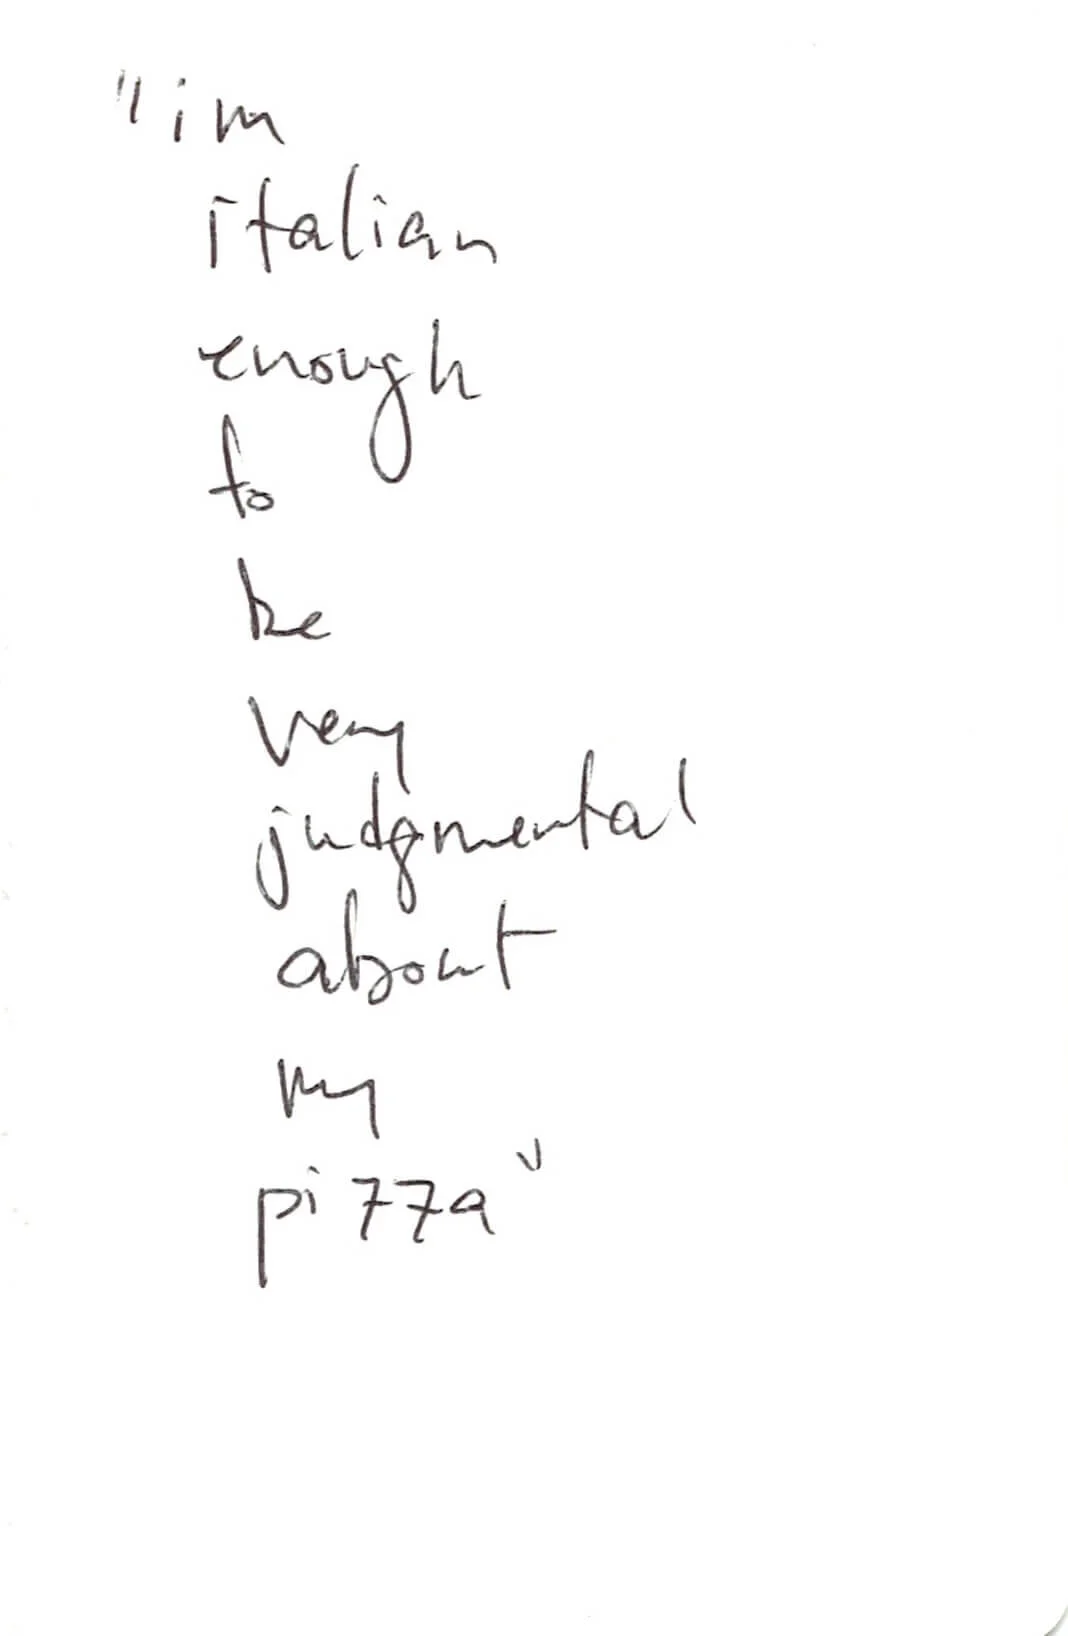 "im
italian
enough
to
be
very
judgmental
about
my
pizza"